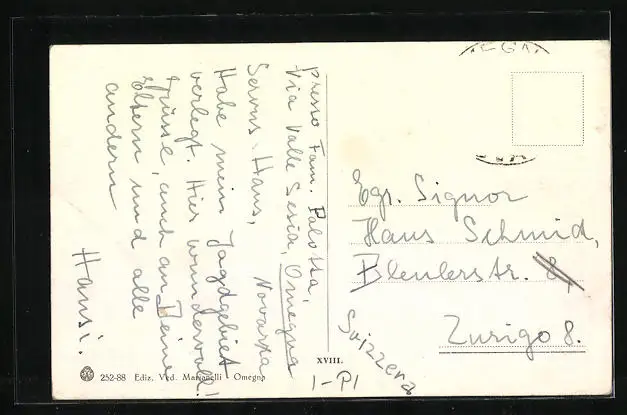 presso Fam. Palotta,
Via Valle Sesia, Omegna
Novara
Servus Hans,
Habe mein Jagdgebiet
verlegt. Hier wundervoll!
Grüsse, auch an Deine
Eltern und alle
andern
Hansi.
EGNA
Egr. Signor
Hans Schmid,
Bleulerstr. 8,
Zurigo 8.
Svizzera
XVIII.
1-P1
252-88 Ediz. Ved. Marianelli Omegna